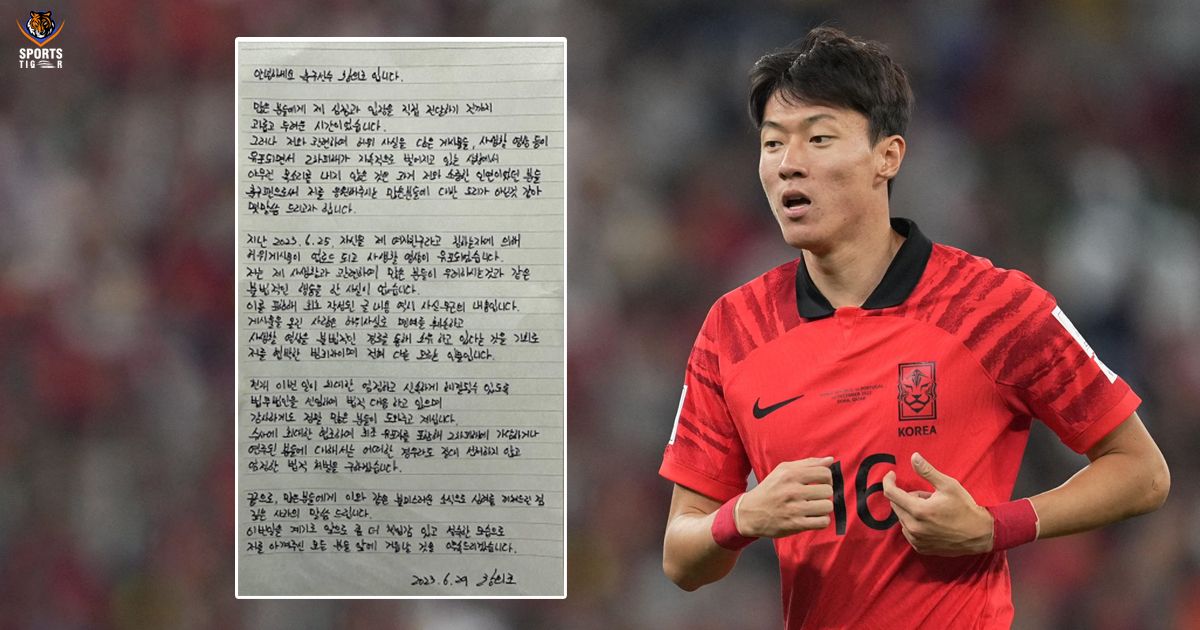 SPORTS
TIGER
안녕하세요 축구선수 황의조 입니다.
많은 분들에게 제 심정과 입장을 직접 전달하기 전까지
괴롭고 두려운 시간이었습니다.
그러나 저와 관련하여 허위 사실을 담은 게시물들, 사생활 영상 등이
유포되면서 2차피해가 지속적으로 벌어지고 있는 상황에서
아무런 목소리를 내지 않은 것은 과거 저와 소중한 인연이었던 분들
축구팬으로써 저를 응원해주시는 많은분들에 대한 도리가 아닌것 같아
몇말씀 드리고자 합니다.
지난 2023.6.25. 자신을 제 여자친구라고 칭하는자에 의해
허위게시물이 업로드 되고 사생활 영상이 유포되었습니다.
저는 제 사생활과 관련하여 많은 분들이 우려하시는것과 같은
불법적인 행동을 한 사실이 없습니다.
이를 포함해 최초 작성된 글 내용 역시 사실무근의 내용입니다.
게시물을 올린 사람은 허위사실로 명예를 훼손하고
사생활 영상을 불법적인 경로를 통해 소유하고 있다는 것을 기회로
저를 협박한 범죄자이며 전혀 모르는 인물입니다.
현재 이번 일이 최대한 엄정하고 신속하게 해결될수 있도록
법무법인을 선임하여 법적 대응 하고 있으며
감사하게도 정말 많은 분들이 도와주고 계십니다.
수사에 최대한 협조하여 최초 유포자를 포함해 2차피해에 가담하거나
연루된 분들에 대해서는 어떠한 경우라도 절대 선처하지 않고
엄정한 법적 처벌을 구하겠습니다.
끝으로, 많은분들에게 이와 같은 불미스러운 소식으로 심려를 끼쳐드린 점
깊은 사과의 말씀 드립니다.
이번일을 계기로 앞으로 좀 더 책임감 있고 성숙한 모습으로
저를 아껴주신 모든 분들 앞에 거듭날 것을 약속드리겠습니다.
2023.6.29 황의조
KOREA
16